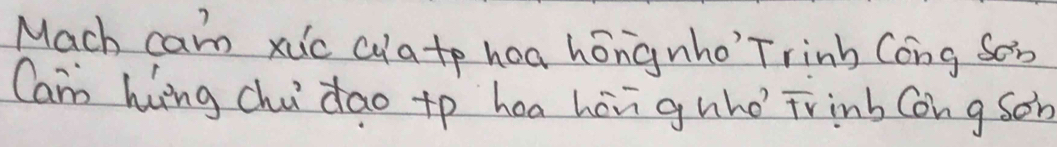 Mạch cảm xúc của tp hoa hồng nhỏ Trịnh Công Sơn
Cảm hứng chủ đạo tp hoa hồng nhỏ Trịnh Công Sơn